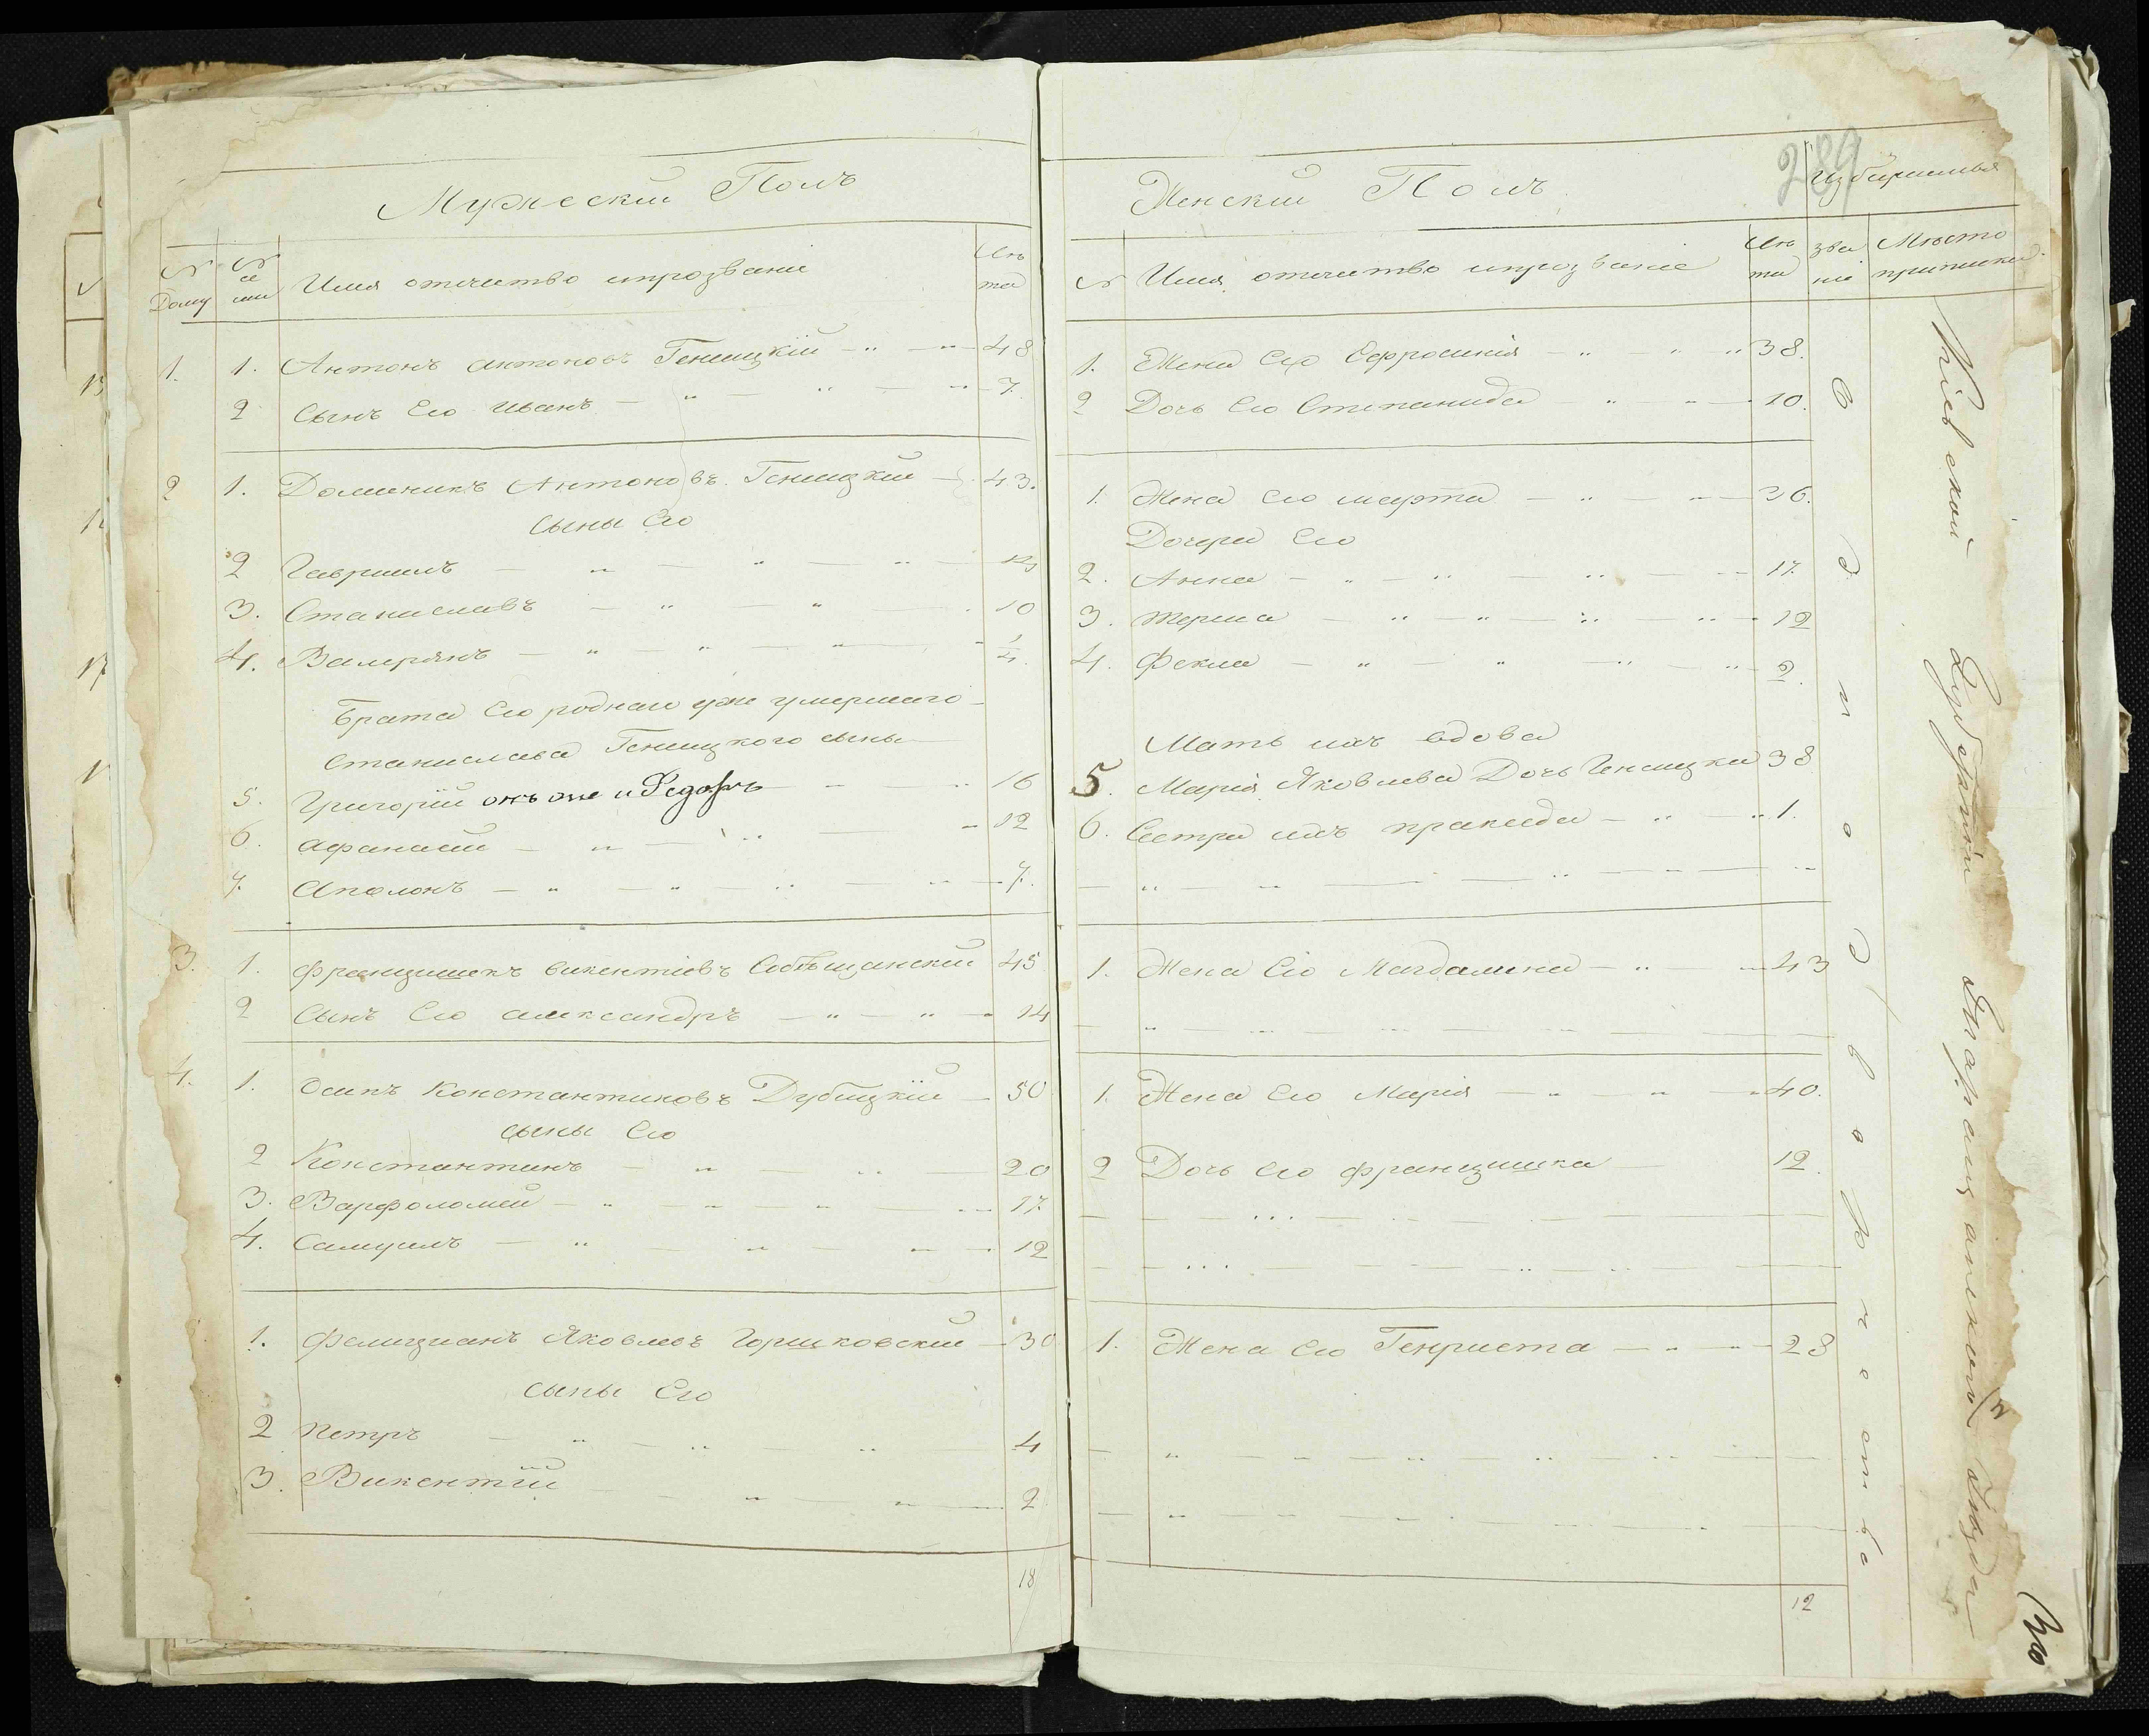 Мужескій Полъ
№ Дому
№ семи
Имя отечество ипрозваніе
Лѣта
1. 1. Антонъ антоновъ Геницкій 48
2 Сынъ Его иванъ 7.
2 1. Доминикъ Антоновъ Геницкій 43.
Сыны Его
2 Гавриилъ
3. Станиславъ 10
4. Валерянъ
Брата Его роднаго уже умершаго
Станислава Геницкого сыны
5. Григорій онъ же и Федоръ 16
6. Афанасій 12
7. Аполонъ 7.
3. 1. Францишекъ викентіевъ 45
2 Сынъ Его александръ 14
4. 1. Осипъ Константиновъ Дубицкій 50
сыны Его
2 Константинъ 20
3. Варфоломей 17.
4. Самуилъ 12
1. Фелицианъ Яковлевъ Горшковскій 30
сыны Его
2 Петръ 4
3. Викентій 2
18
289
Женскій Полъ
Избираемыя
№
Имя отечество ипрозваніе
Лѣта
званіе
Мѣсто приписки
1. Жена Его Ефросинія 38.
2 Дочь Его Степанида 10.
1. Жена Его марта 36.
Дочери Его
2. Анна 17.
3. Тереса 12
4. Фекла 2.
Мать ихъ вдова
5. Марія Яковлева Дочь Геницка 38
6. Сестра ихъ 1.
1. Жена Его Магдалина 43
1. Жена Его Марія 40.
2 Дочь Его францишка 12.
1. Жена Его Генриета 28
12
Кіевской Губерніи уезда
30